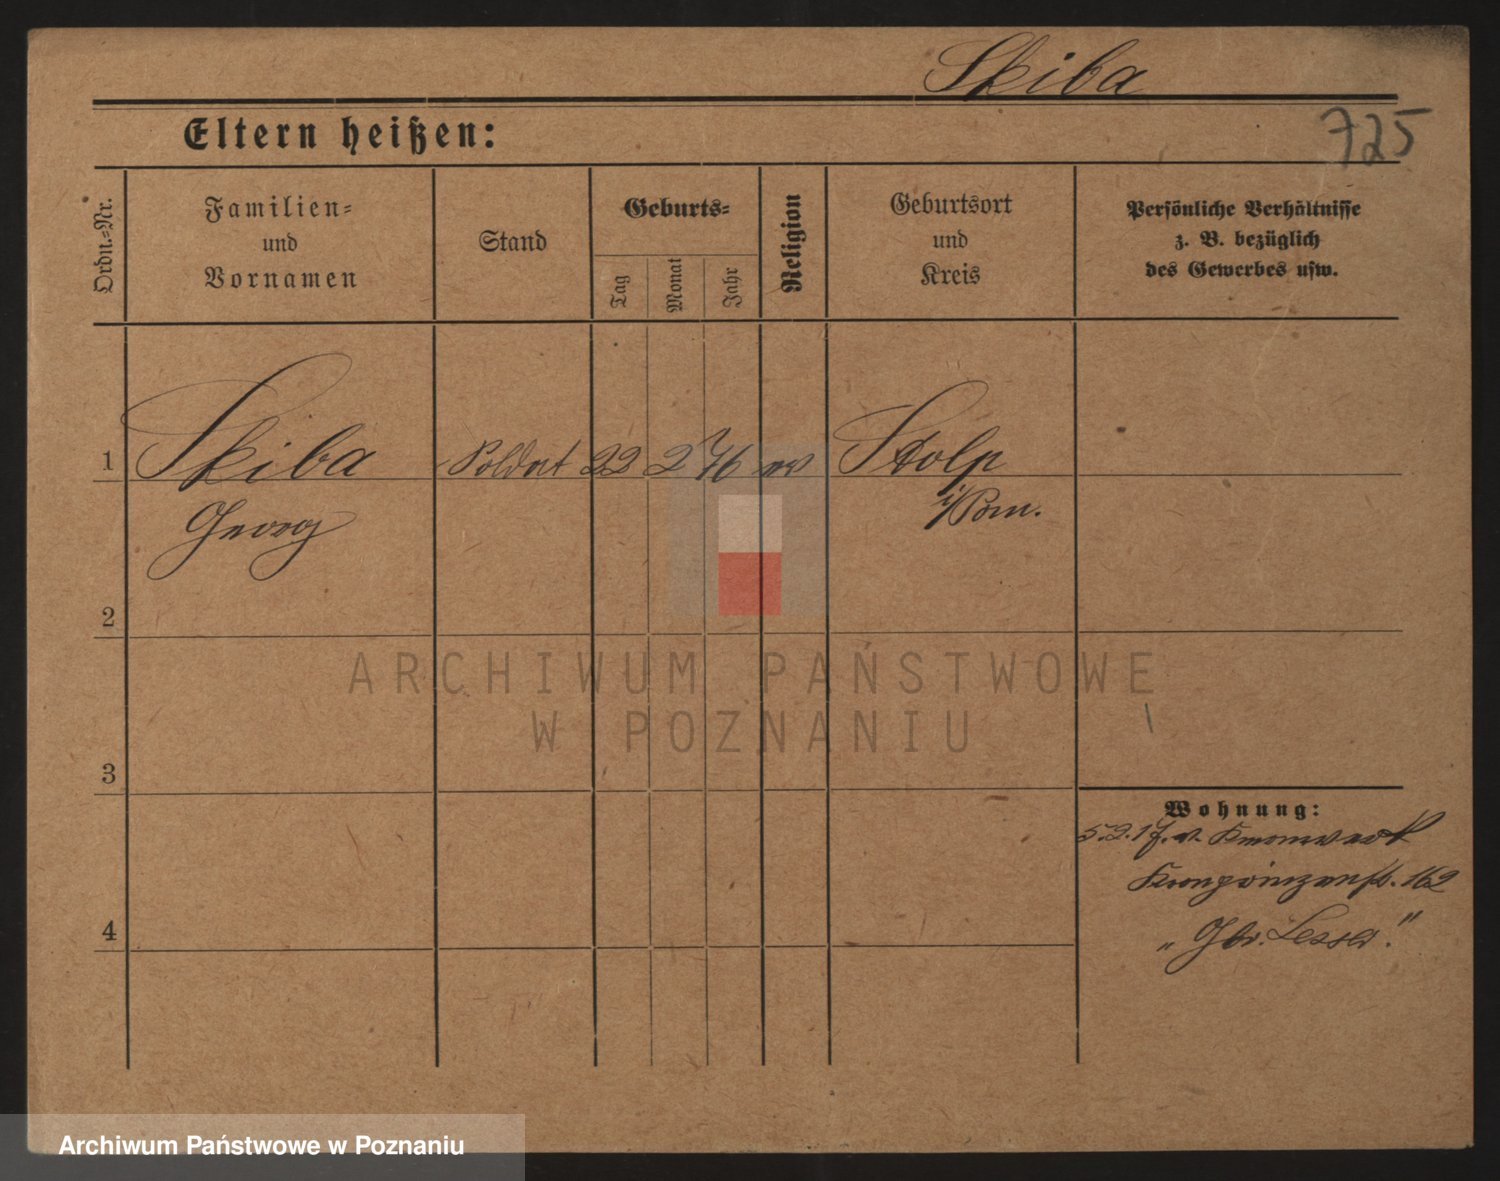 Skiba
Eltern heißen:
725
Ordn.=Nr.
Familien=
und
Vornamen
Stand
Geburts=
Tag
Monat
Jahr
Religion
Geburtsort
und
Kreis
Persönliche Verhältnisse
z. B. bezüglich
des Gewerbes usw.
1
Skiba
Soldat
22
2
76
ev
Stolp
Georg
i/Pom.
2
ARCHIWUM PAŃSTWOWE
W POZNANIU
3
Wohnung:
5.2.17. v.
Kronprinzenstr. 162
4
„Gbr. Lesser."
Archiwum Państwowe w Poznaniu